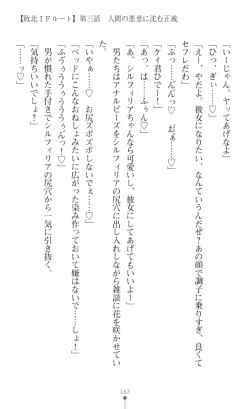 【敗北IFルート】第三話　人間の悪意に沈む正義
「いーじゃん。ヤッてあげなよ」
「ひっ。ぎぃ……♡」
「えー、やだよ。彼女になりたい、なんていうんだぜ？あの顔で調子に乗りすぎ、良くて
セフレだわ」
「ふっ……んんっ♡　おぉ……♡」
「ケイ君ひでー！」
「あっ。は……ふぅん♡」
「あ、シルフィリアちゃんなら可愛いし、彼女にしてあげてもいーよ」
男たちはアナルビーズをシルフィリアの尻穴に出し入れしながら雑談に花を咲かせてい
た。
「いやぁ……♡　お尻ズボズボしないでぇ……♡」
「ベッドにこんなおねしょみたいに広がった染み作っておいて嫌はないで……しょ！」
「ふぅぅううううぅぅんっ！♡」
男が慣れた手付きでシルフィリアの尻穴から一気に引き抜く。
「気持ちいいでしょ？」
「……っ♡」
167